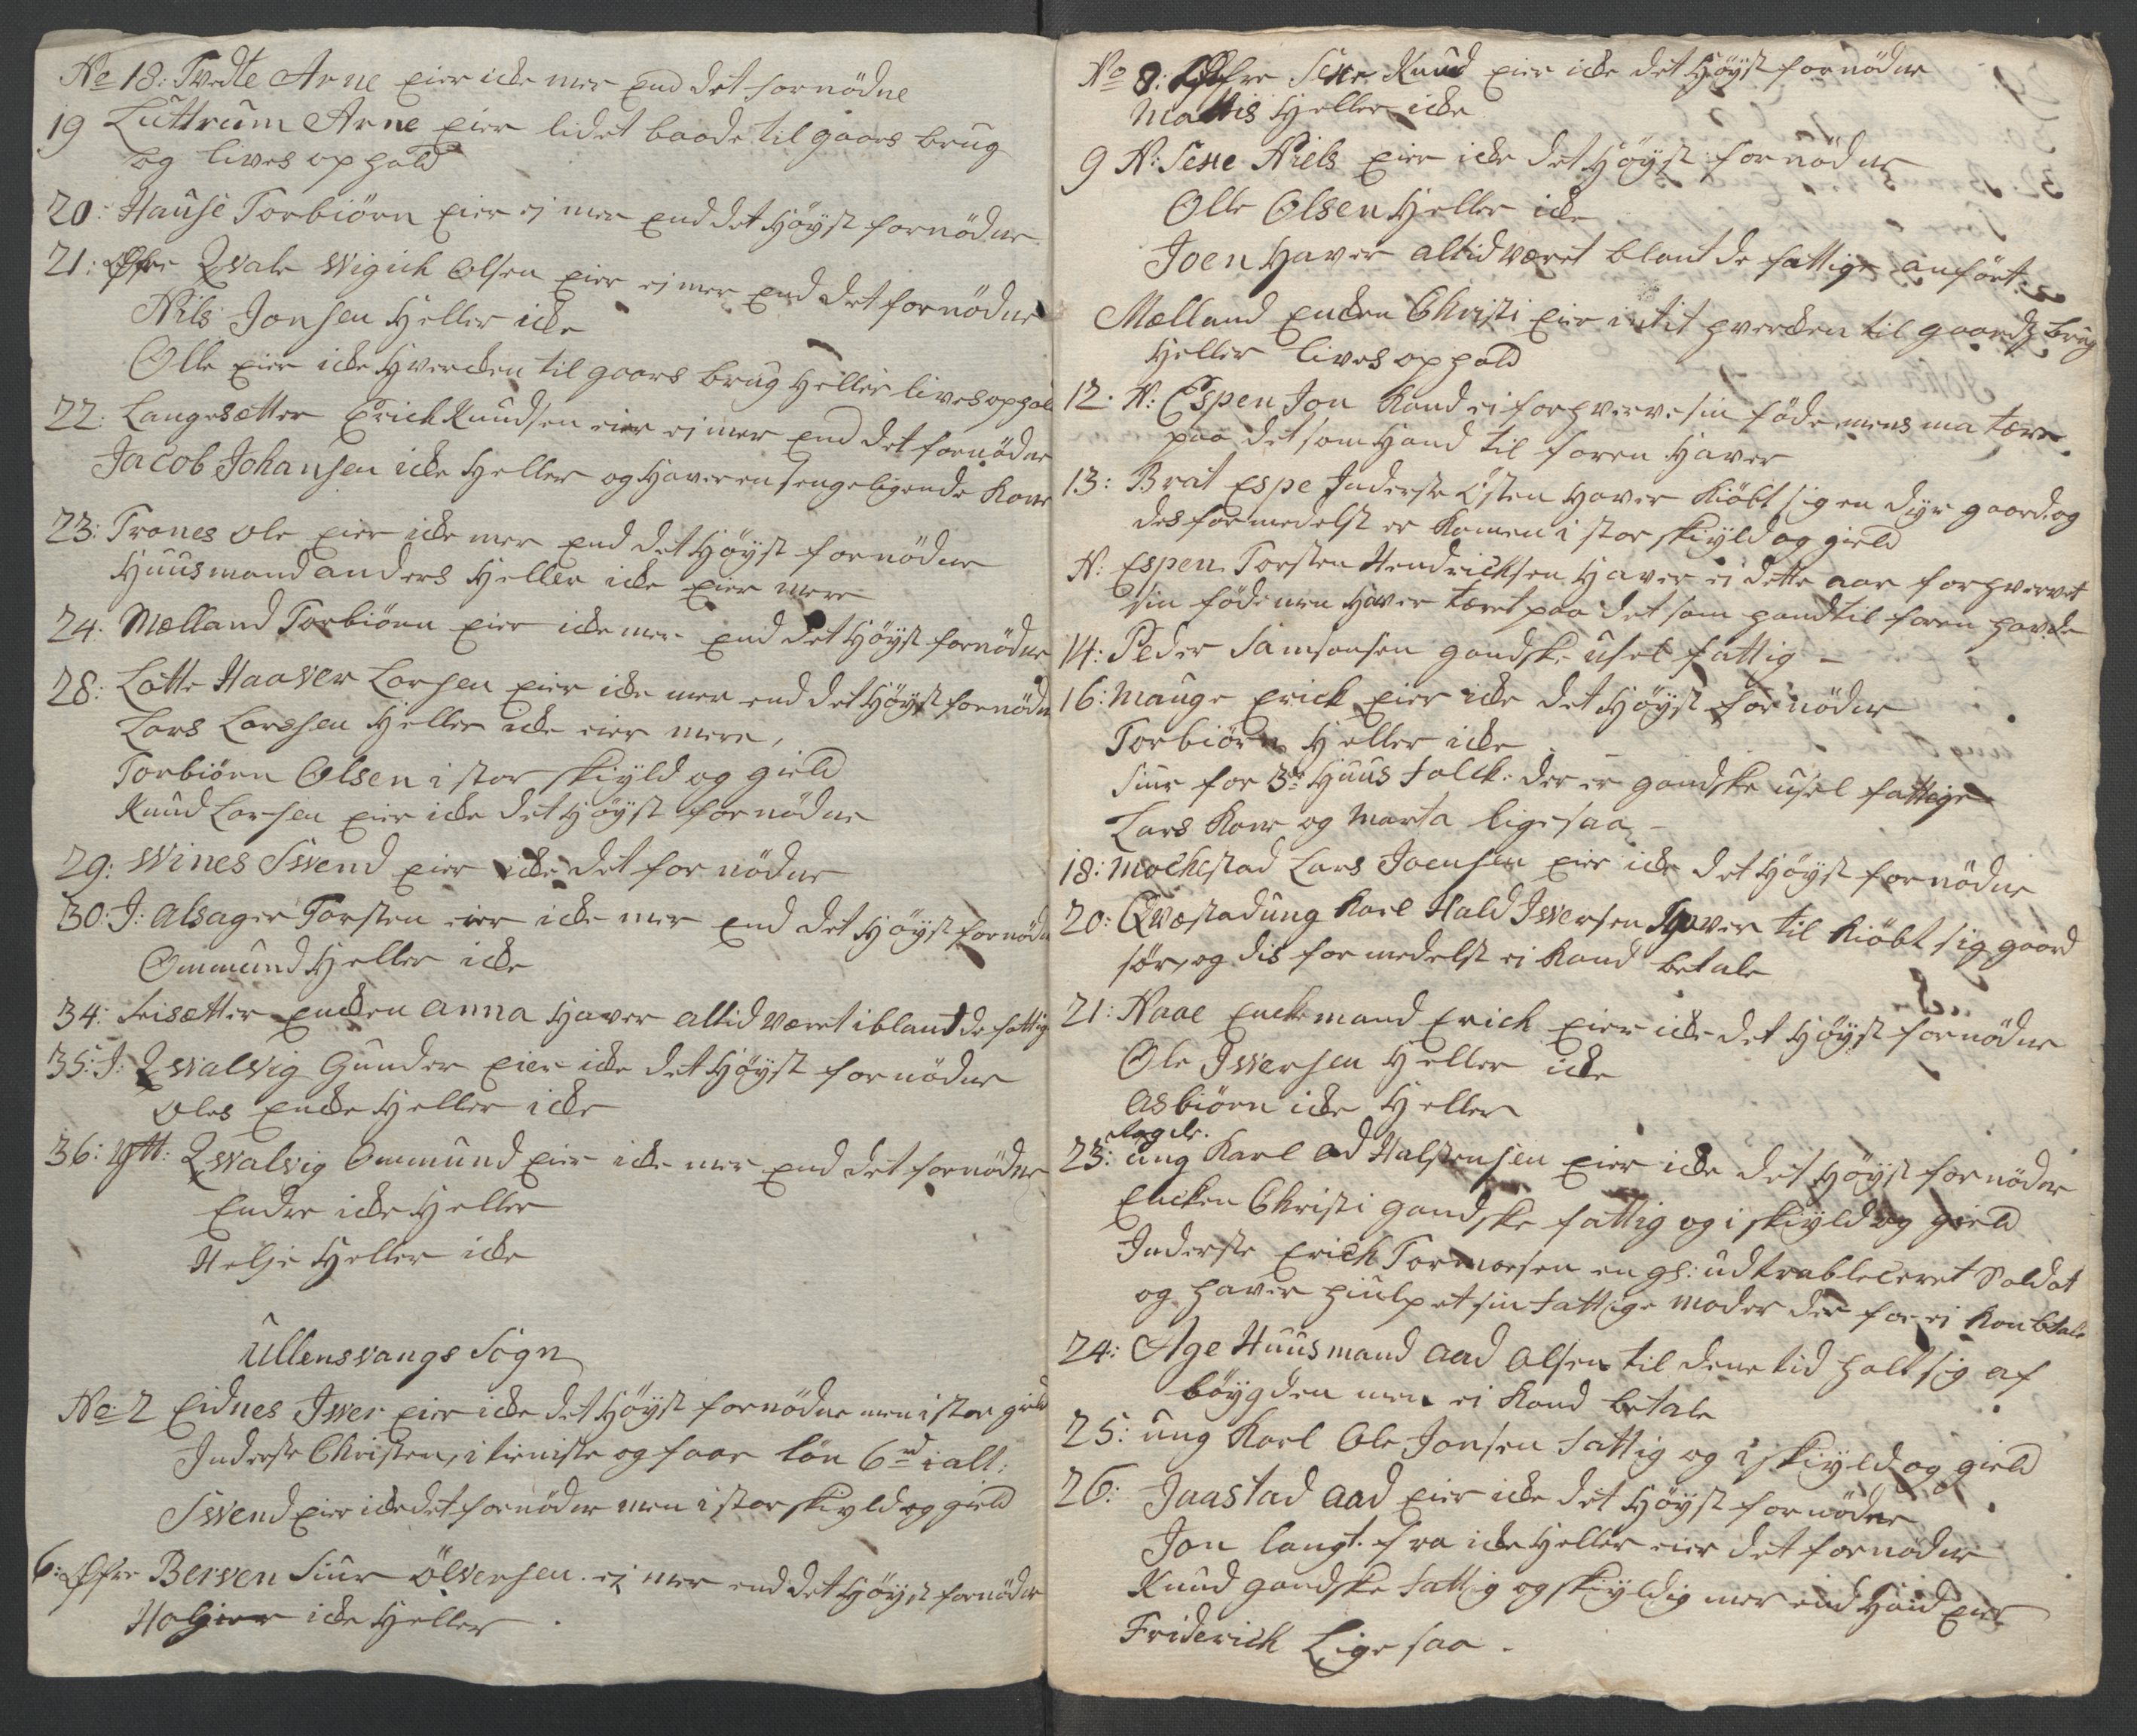 No 18: Tvedte Arne eier icke mer end det fornödne
19 Luttrum Arne eier lidet baade til gaars brug
og lives ophold
20: Hause Torbiörn eier ej mer end det Höyst fornödne
21: Öfre Qvale Wigich Olsen eier ej mer end det fornödne
Nils Jonsen Heller icke
Olle eier icke Hvercken til gaars brug Heller lives ophold
22: Langesætter Erich Knudsen eier ej mer end det fornödne
Jacob Johansen icke Heller og Haver en sengeligende Kone
23: Trones Ole eier icke mer end det Höyst fornödne
Huusmand anders Heller icke eier mere
24: Mælland Torbiörn eier icke mer end det Höyst fornödne
28: Lotte Haaver Larsen eier icke mer end det Höyst fornödne
Lars Larssen Heller icke eier mere,
Torbiörn Olsen i stor skyld og gield
Knud Larsen eier icke det Höyst fornödne
29: Wines Swend eier icke det fornödne
30: J: Alsager Torsten eier icke mer end det Höyst fornödne
Ommund Heller icke
34: Seisætter encken anna Haver altid været iblant de fattig
35: J: Qwalvig Gunder eier icke det Höyst fornödne
Oles encke Heller icke
36: Ytt: Qwalvig Ommund eier icke mer end det fornödne
Endre icke Heller
Helje Heller icke
Ullensvangs Sogn
No: 2 Eidnes Iwer eier icke det Höyst fornödne men i stor gield
Inderste Christen, i tieniste og faar lön 6 rd i alt:
Swend eier icke det fornödne men i stor skyld og gield
6: Öfre Berven Siur Ölversen ej mer end det Höyst fornödne
Holgier icke Heller
No 8: Öfre Sexe Knud eier icke det Höyst fornödne
Mattis Heller icke
9 N: Sexe Niels eier icke det Höyst fornödne
Olle Olsen Heller icke
Joen Haver altid været blant de fattige anfört:
Mælland encken Christi eier intit hvercken til gaards brug
Heller lives ophold
12: N: Espen Jon kand ei forhverve sin föde mens ma tære
paa det som Hand til foren Haver
13: Brat Espe Inderste Östen Haver kiöbt sig en dyr gaard og
des formedelst er komen i stor skyld og gield
N: Espen Torsten Hendricksen Haver ej dette aar forhvervet
sin föde men Haver tæret paa det som hand til foren havde
14: Peder Samsonsen gandske usel fattig –
16: Mauge Erick eier icke det Höyst fornödne
Torbiörn Heller icke
Siur for 3de Huus Folck. der er gandske usel fattige
Lars kone og Marta ligesaa –
18: Mochestad Lars Joensen eier icke det Höyst fornödne
20: Qvæstad ung karl Hald Iwersen Haver til kiöbt sig gaard
för, og dis formedelst ei kand betale
21: Naae Enckemand Erich eier icke det Höyst fornödne
Ole Iwersen Heller icke
Asbiörn icke Heller
23: ung karl Od Halstensen eier icke det Höyst fornödne
Encken Christi gandske fattig og i skyld og gield
Inderste Erich Tormoesen en gl: udtrableceret Soldat
og haver hiulpet sin fattige Moder der for ei kan betale
24: Age Huusmand Aad Olsen til dene tid holt sig af
böygden men ei kand betale
25: ung karl Ole Jonsen fattig og i skyld og gield
26: Jaastad Aad eier icke det Höyst fornödne
Jon langt fra icke Heller eier det fornödne
Knud gandske fattig og skyldig mer end Hand eier
Friderich Lige saa.